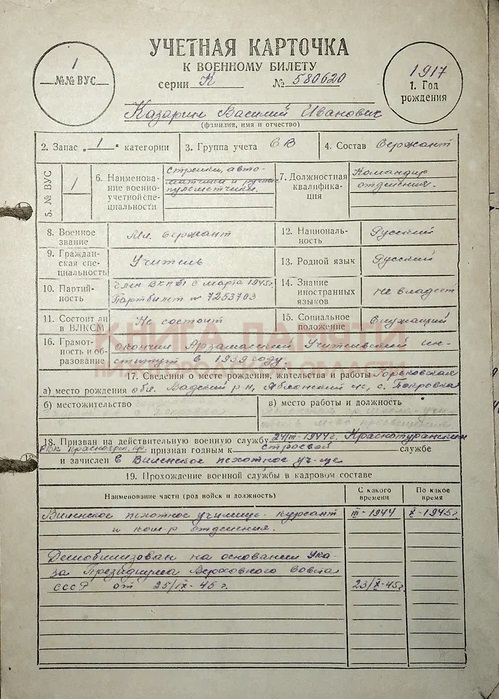 1
№№ ВУС
УЧЕТНАЯ КАРТОЧКА
К ВОЕННОМУ БИЛЕТУ
серии К № 580620
1917
1. Год
рождения
Казарин Василий Иванович
(фамилия, имя и отчество)
2. Запас 1 категории
3. Группа учета ВВ
4. Состав Сержант
5. № ВУС
1
6. Наименова-
ние военно-
учетной спе-
циальности
стрелки, авто-
матчики и ручные
пулеметчики.
7. Должностная
квалифика-
ция
Командир
отделения.
8. Военное
звание
Мл. сержант
12. Националь-
ность
Русский
9. Граждан-
ская спе-
циальность
Учитель
13. Родной язык
Русский
10. Партий-
ность
Член ВКП(б) с марта 1945г.
Партбилет № 7253703
14. Знание
иностранных
языков
не владеет
11. Состоит ли
в ВЛКСМ
Не состоит
15. Социальное
положение
Служащий
КНИГА ПАМЯТИ
16. Грамот-
ность и об-
разование
окончил Арзамасский Учительский ин-
ститут в 1939 году.
17. Сведения о месте рождения, жительства и работы Горьковская
а) место рождения обл. Вадский р-н, с. Покровка
б) местожительство
в) место работы и должность
18. Призван на действительную военную службу 24/III-1944г. Краснотуранским
РВК Красноярск. кр. признан годным к строевой службе
и зачислен в Виленское пехотное уч-ще
19. Прохождение военной службы в кадровом составе
Наименование части (род войск и должность)
С какого
времени
По какое
время
Виленское пехотное училище - курсант
и ком-р отделения.
III-1944
X-1945г.
Демобилизован на основании Ука-
за Президиума Верховного Совета
СССР от 25/IX-45г.
23/X-45г.